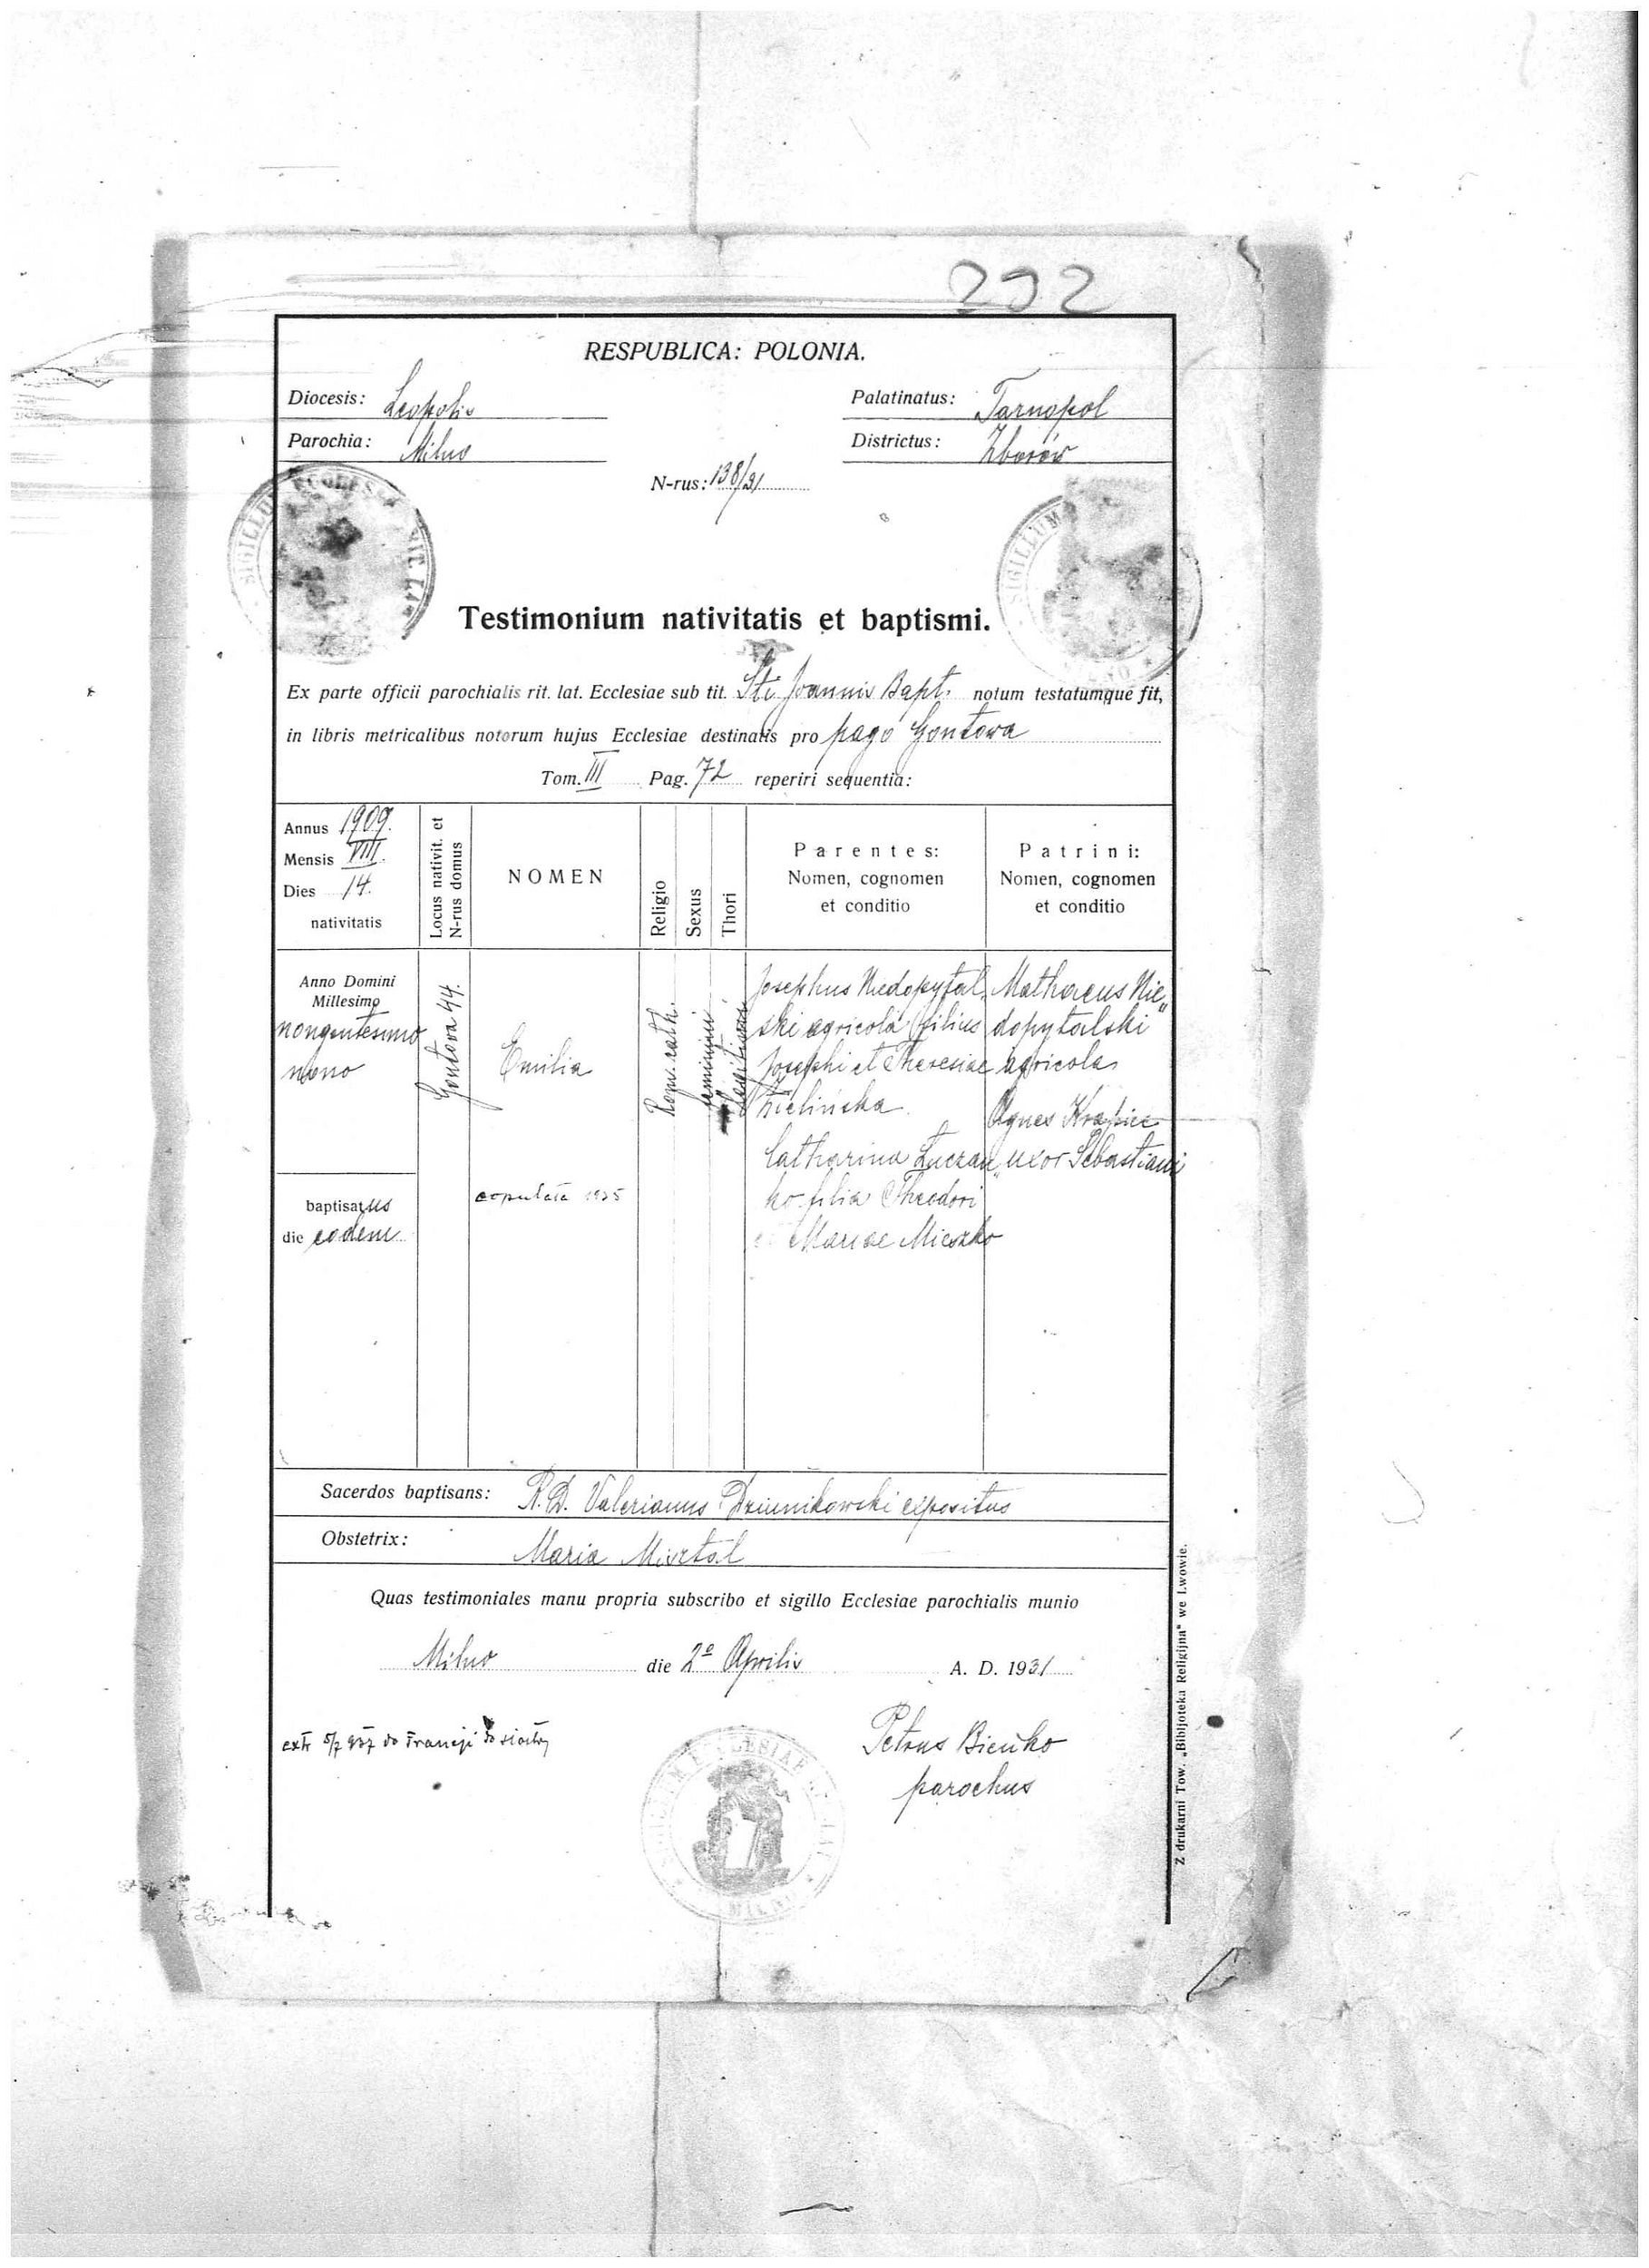 292
RESPUBLICA: POLONIA.
Diocesis: Leopolis
Palatinatus: Tarnopol
Parochia: Milno
Districtus: Zborów
N-rus: 138/31
Testimonium nativitatis et baptismi.
Ex parte officii parochialis rit. lat. Ecclesiae sub tit. Sti Joannis Bapt. notum testatumque fit,
in libris metricalibus notorum hujus Ecclesiae destinatis pro pago Gontowa
Tom. III Pag. 72 reperiri sequentia:
Annus 1909.
Mensis VIII.
Dies 14.
nativitatis
Locus nativit. et
N-rus domus
NOMEN
Religio
Sexus
Thori
Parentes:
Nomen, cognomen
et conditio
Patrini:
Nomen, cognomen
et conditio
Anno Domini
Millesimo
nongentesimo
nono
baptisatus
die eodem
Gontowa 44.
Emilia
copulata 1935
Rom. cath.
feminini
Josephus Niedopytal„
ski agricola (filius
Josephi et Theresiae
Zielińska
Catharina Łuczan„
ko filia Theodori
et Mariae Mieszko
Mathaeus Nie„
dopytalski
agricola
Agnes Krąpiec
uxor Sebastiani
Sacerdos baptisans: R. D. Valerianus Dziunikowski expositus
Obstetrix: Maria Misztal
Quas testimoniales manu propria subscribo et sigillo Ecclesiae parochialis munio
Milno die 2º Aprilis A. D. 1931
extr 5/7 937 do Francji do siostry
Petrus Bieńko
parochus
Z drukarni Tow. „Bibljoteka Religijna" we Lwowie.